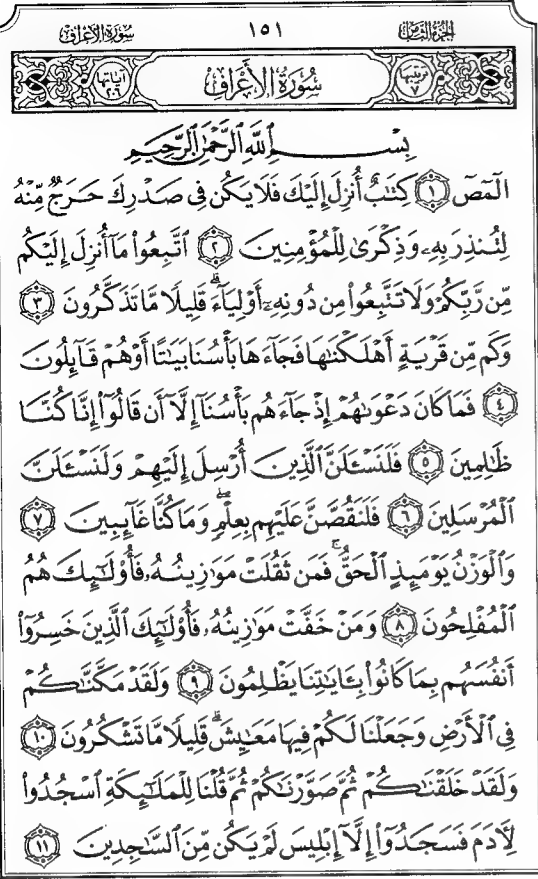 سُورَةُ الأَعْرَافِ ١٥١ الجُزْءُ الثَّامِنُ
ترتيبها ٧ سُورَةُ الأَعْرَافِ آياتها ٢٠٦
بِسْمِ ٱللَّهِ ٱلرَّحْمَٰنِ ٱلرَّحِيمِ
الٓمٓصٓ ١ كِتَٰبٌ أُنزِلَ إِلَيْكَ فَلَا يَكُن فِى صَدْرِكَ حَرَجٌ مِّنْهُ
لِتُنذِرَ بِهِۦ وَذِكْرَىٰ لِلْمُؤْمِنِينَ ٢ ٱتَّبِعُوا۟ مَآ أُنزِلَ إِلَيْكُم
مِّن رَّبِّكُمْ وَلَا تَتَّبِعُوا۟ مِن دُونِهِۦٓ أَوْلِيَآءَ ۗ قَلِيلًا مَّا تَذَكَّرُونَ ٣
وَكَم مِّن قَرْيَةٍ أَهْلَكْنَٰهَا فَجَآءَهَا بَأْسُنَا بَيَٰتًا أَوْ هُمْ قَآئِلُونَ
٤ فَمَا كَانَ دَعْوَىٰهُمْ إِذْ جَآءَهُم بَأْسُنَآ إِلَّآ أَن قَالُوٓا۟ إِنَّا كُنَّا
ظَٰلِمِينَ ٥ فَلَنَسْـَٔلَنَّ ٱلَّذِينَ أُرْسِلَ إِلَيْهِمْ وَلَنَسْـَٔلَنَّ
ٱلْمُرْسَلِينَ ٦ فَلَنَقُصَّنَّ عَلَيْهِم بِعِلْمٍ ۖ وَمَا كُنَّا غَآئِبِينَ ٧
وَٱلْوَزْنُ يَوْمَئِذٍ ٱلْحَقُّ ۚ فَمَن ثَقُلَتْ مَوَٰزِينُهُۥ فَأُو۟لَٰٓئِكَ هُمُ
ٱلْمُفْلِحُونَ ٨ وَمَنْ خَفَّتْ مَوَٰزِينُهُۥ فَأُو۟لَٰٓئِكَ ٱلَّذِينَ خَسِرُوٓا۟
أَنفُسَهُم بِمَا كَانُوا۟ بِـَٔايَٰتِنَا يَظْلِمُونَ ٩ وَلَقَدْ مَكَّنَّٰكُمْ
فِى ٱلْأَرْضِ وَجَعَلْنَا لَكُمْ فِيهَا مَعَٰيِشَ ۗ قَلِيلًا مَّا تَشْكُرُونَ ١٠
وَلَقَدْ خَلَقْنَٰكُمْ ثُمَّ صَوَّرْنَٰكُمْ ثُمَّ قُلْنَا لِلْمَلَٰٓئِكَةِ ٱسْجُدُوا۟
لِـَٔادَمَ فَسَجَدُوٓا۟ إِلَّآ إِبْلِيسَ لَمْ يَكُن مِّنَ ٱلسَّٰجِدِينَ ١١